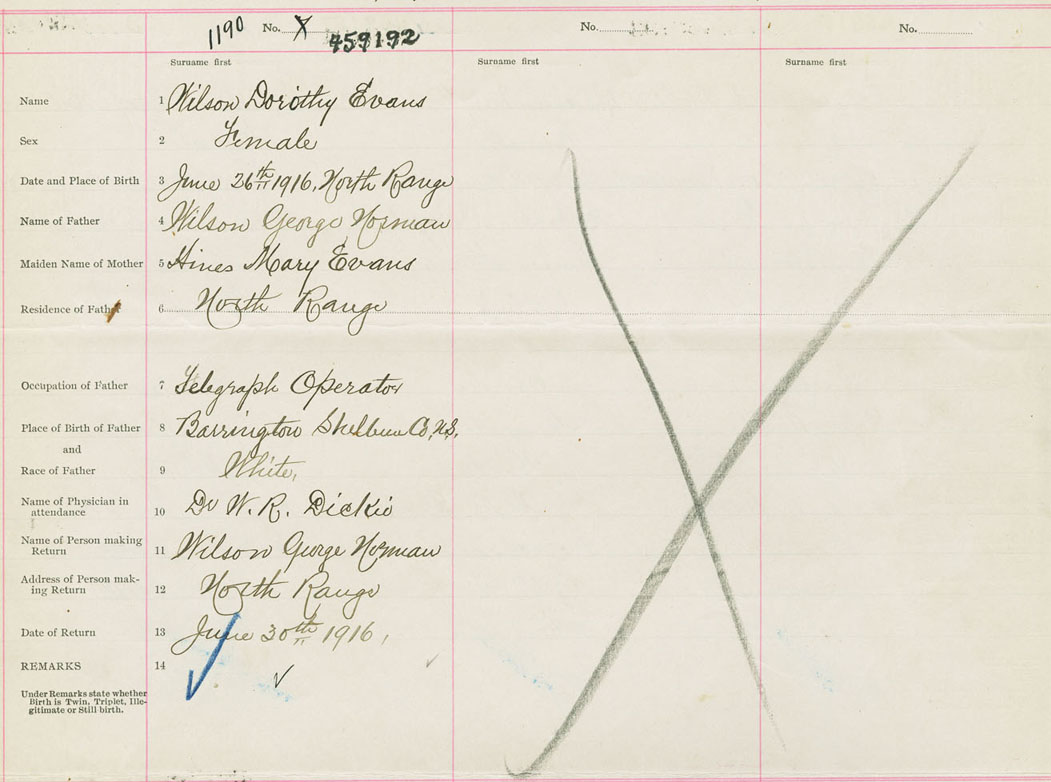 1190 No. X 459192 No. No.
Surname first Surname first Surname first
Name 1 Wilson Dorothy Evans
Sex 2 Female
Date and Place of Birth 3 June 26th 1916, North Range
Name of Father 4 Wilson George Norman
Maiden Name of Mother 5 Hines Mary Evans
Residence of Father 6 North Range
Occupation of Father 7 Telegraph Operator
Place of Birth of Father 8 Barrington Shelburne Co, N.S.
and
Race of Father 9 White,
Name of Physician in
attendance 10 Dr W. R. Dickie
Name of Person making
Return 11 Wilson George Norman
Address of Person mak-
ing Return 12 North Range
Date of Return 13 June 30th 1916,
REMARKS 14
Under Remarks state whether
Birth is Twin, Triplet, Ille-
gitimate or Still birth.